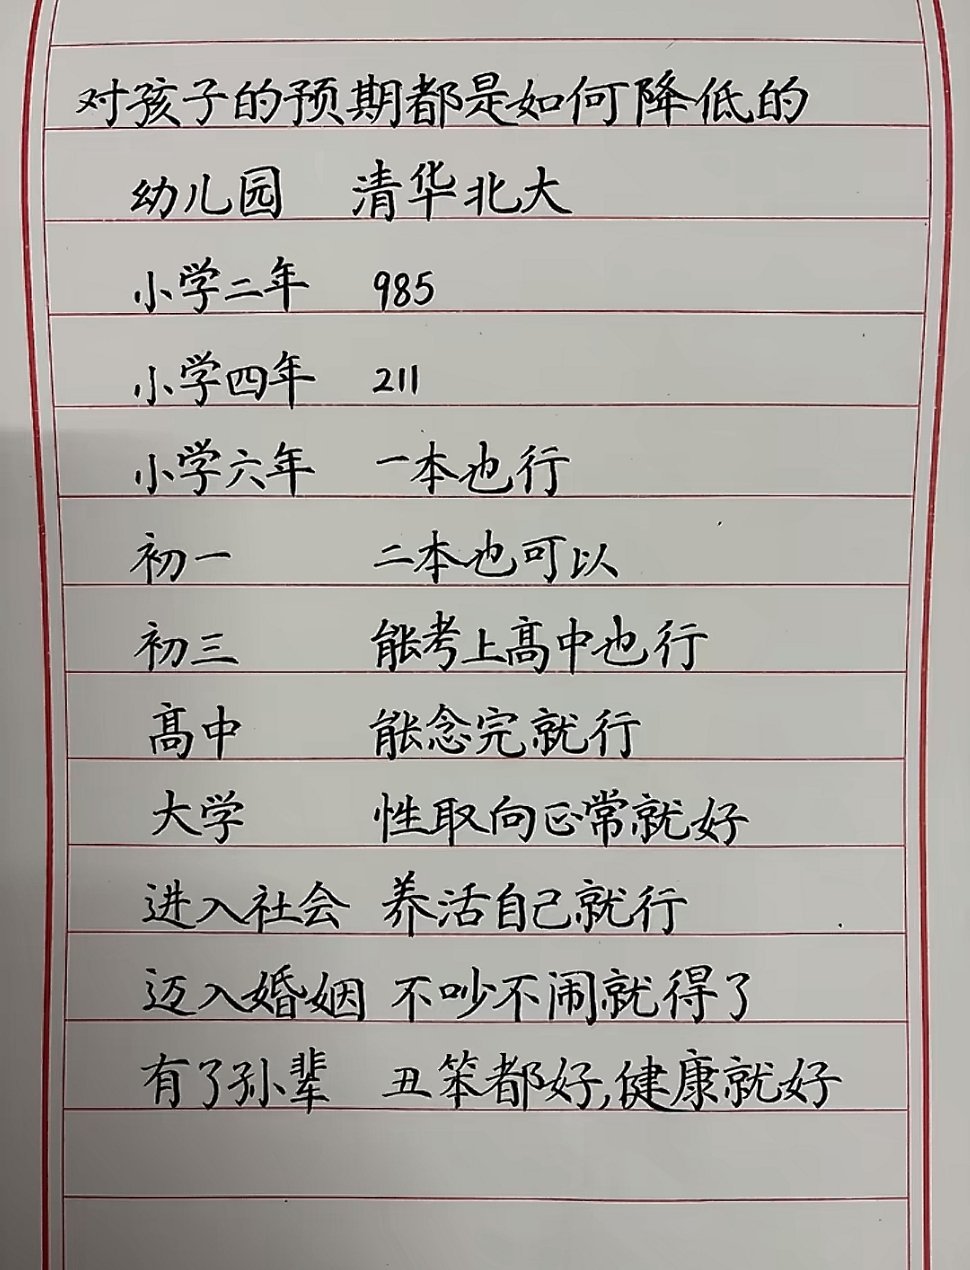 对孩子的预期都是如何降低的
幼儿园 清华北大
小学二年 985
小学四年 211
小学六年 一本也行
初一 二本也可以
初三 能考上高中也行
高中 能念完就行
大学 性取向正常就好
进入社会 养活自己就行
迈入婚姻 不吵不闹就得了
有了孙辈 丑笨都好,健康就好